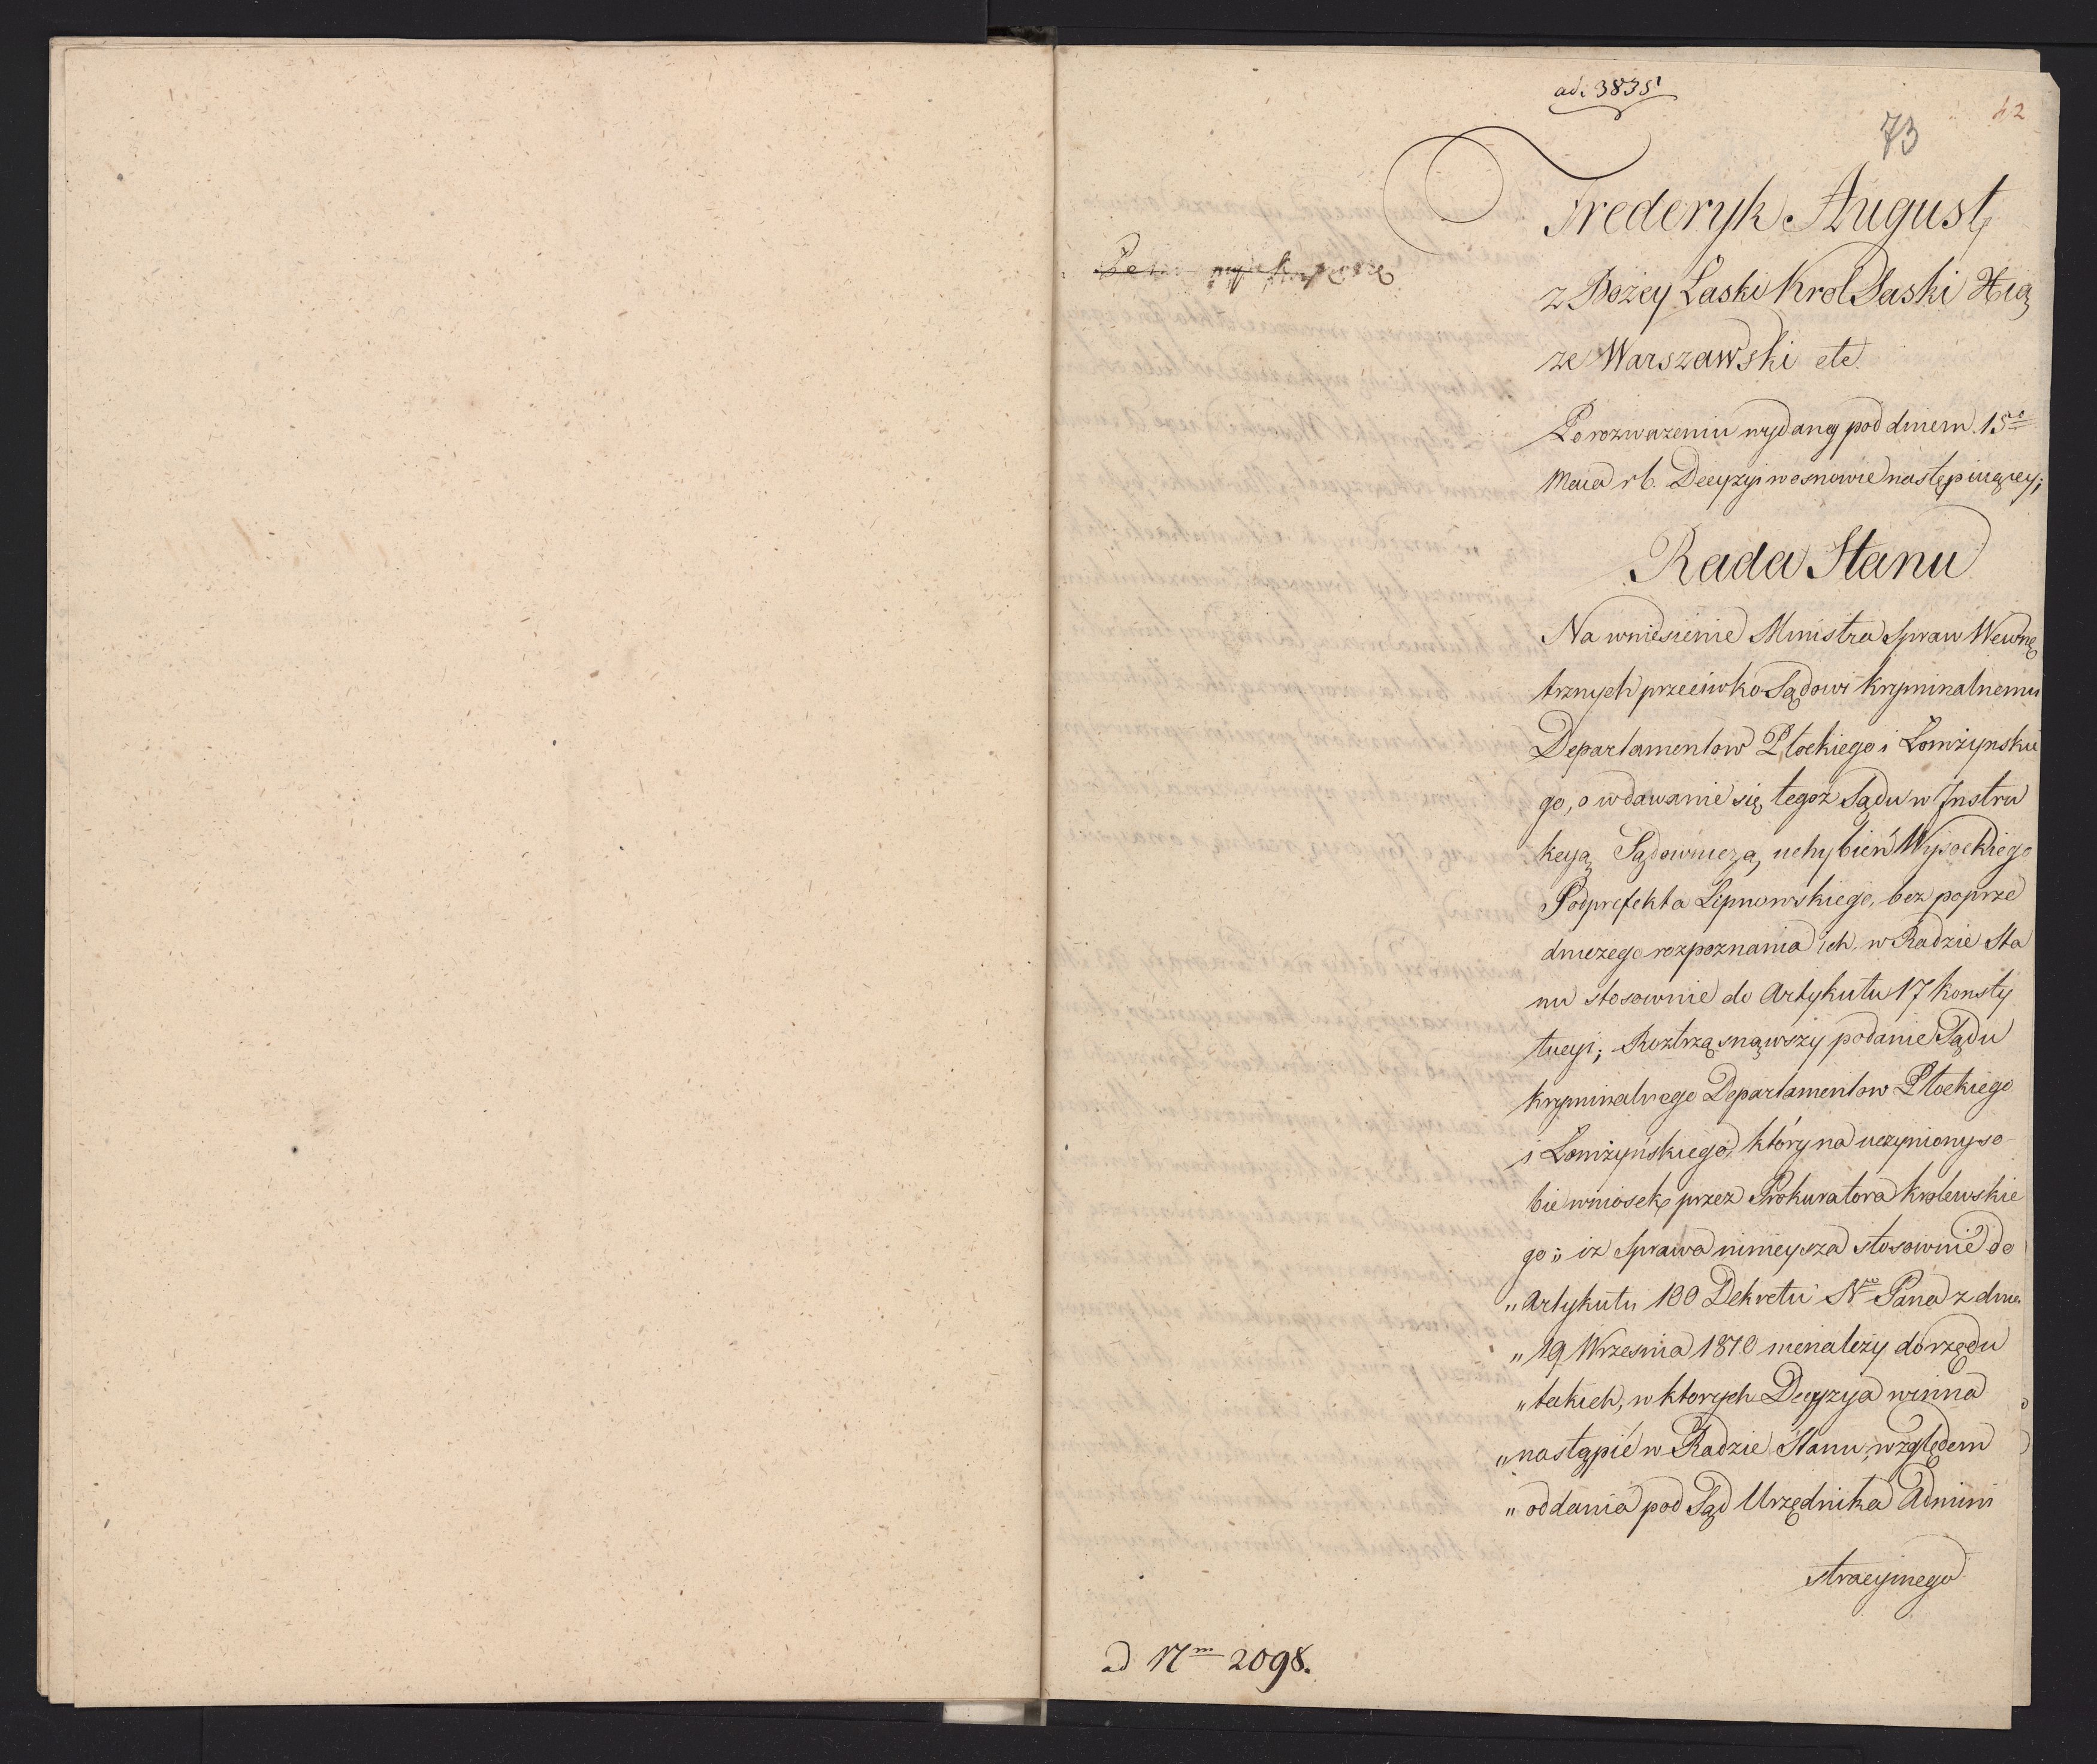 ad: 3835
42
73
Frederyk August
z Bożey Łaski Krol Saski Xią
że Warszawski etc.
Po rozważeniu wydaney pod dniem 15º
Maia rb. Decyzyi w osnowie następuiącey;
Rada Stanu
Na wniesienie Ministra Spraw Wewnę
trznych przeciwko Sądowi Kryminalnemu
Departamentow Płockiego i Łomżynskie
go, o wdawanie się tegoż Sądu w Instru
kcyą Sądowniczą, uchybień Wysockiego
Podprefekta Lipnowskiego, bez poprze
dniczego rozpoznania ich w Radzie Sta
nu stosownie do Artykułu 17 Konsty
tucyi; Roztrząsnąwszy podanie Sądu
Kryminalnego Departamentow Płockiego
i Łomżyńskiego, który na uczyniony so
bie wniosek przez Prokuratora Krolewskie
go „ iż Sprawa ninieysza stosownie do
„ Artykułu 100 Dekretu Nº Pana z dnia
„ 19 Wrzesnia 1810 nienależy do rzędu
„ takich, w ktorych Decyzya winna
„ nastąpić w Radzie Stanu, względem
„ oddania pod Sąd Urzędnika Admini
stracyinego
ad Nm 2098.